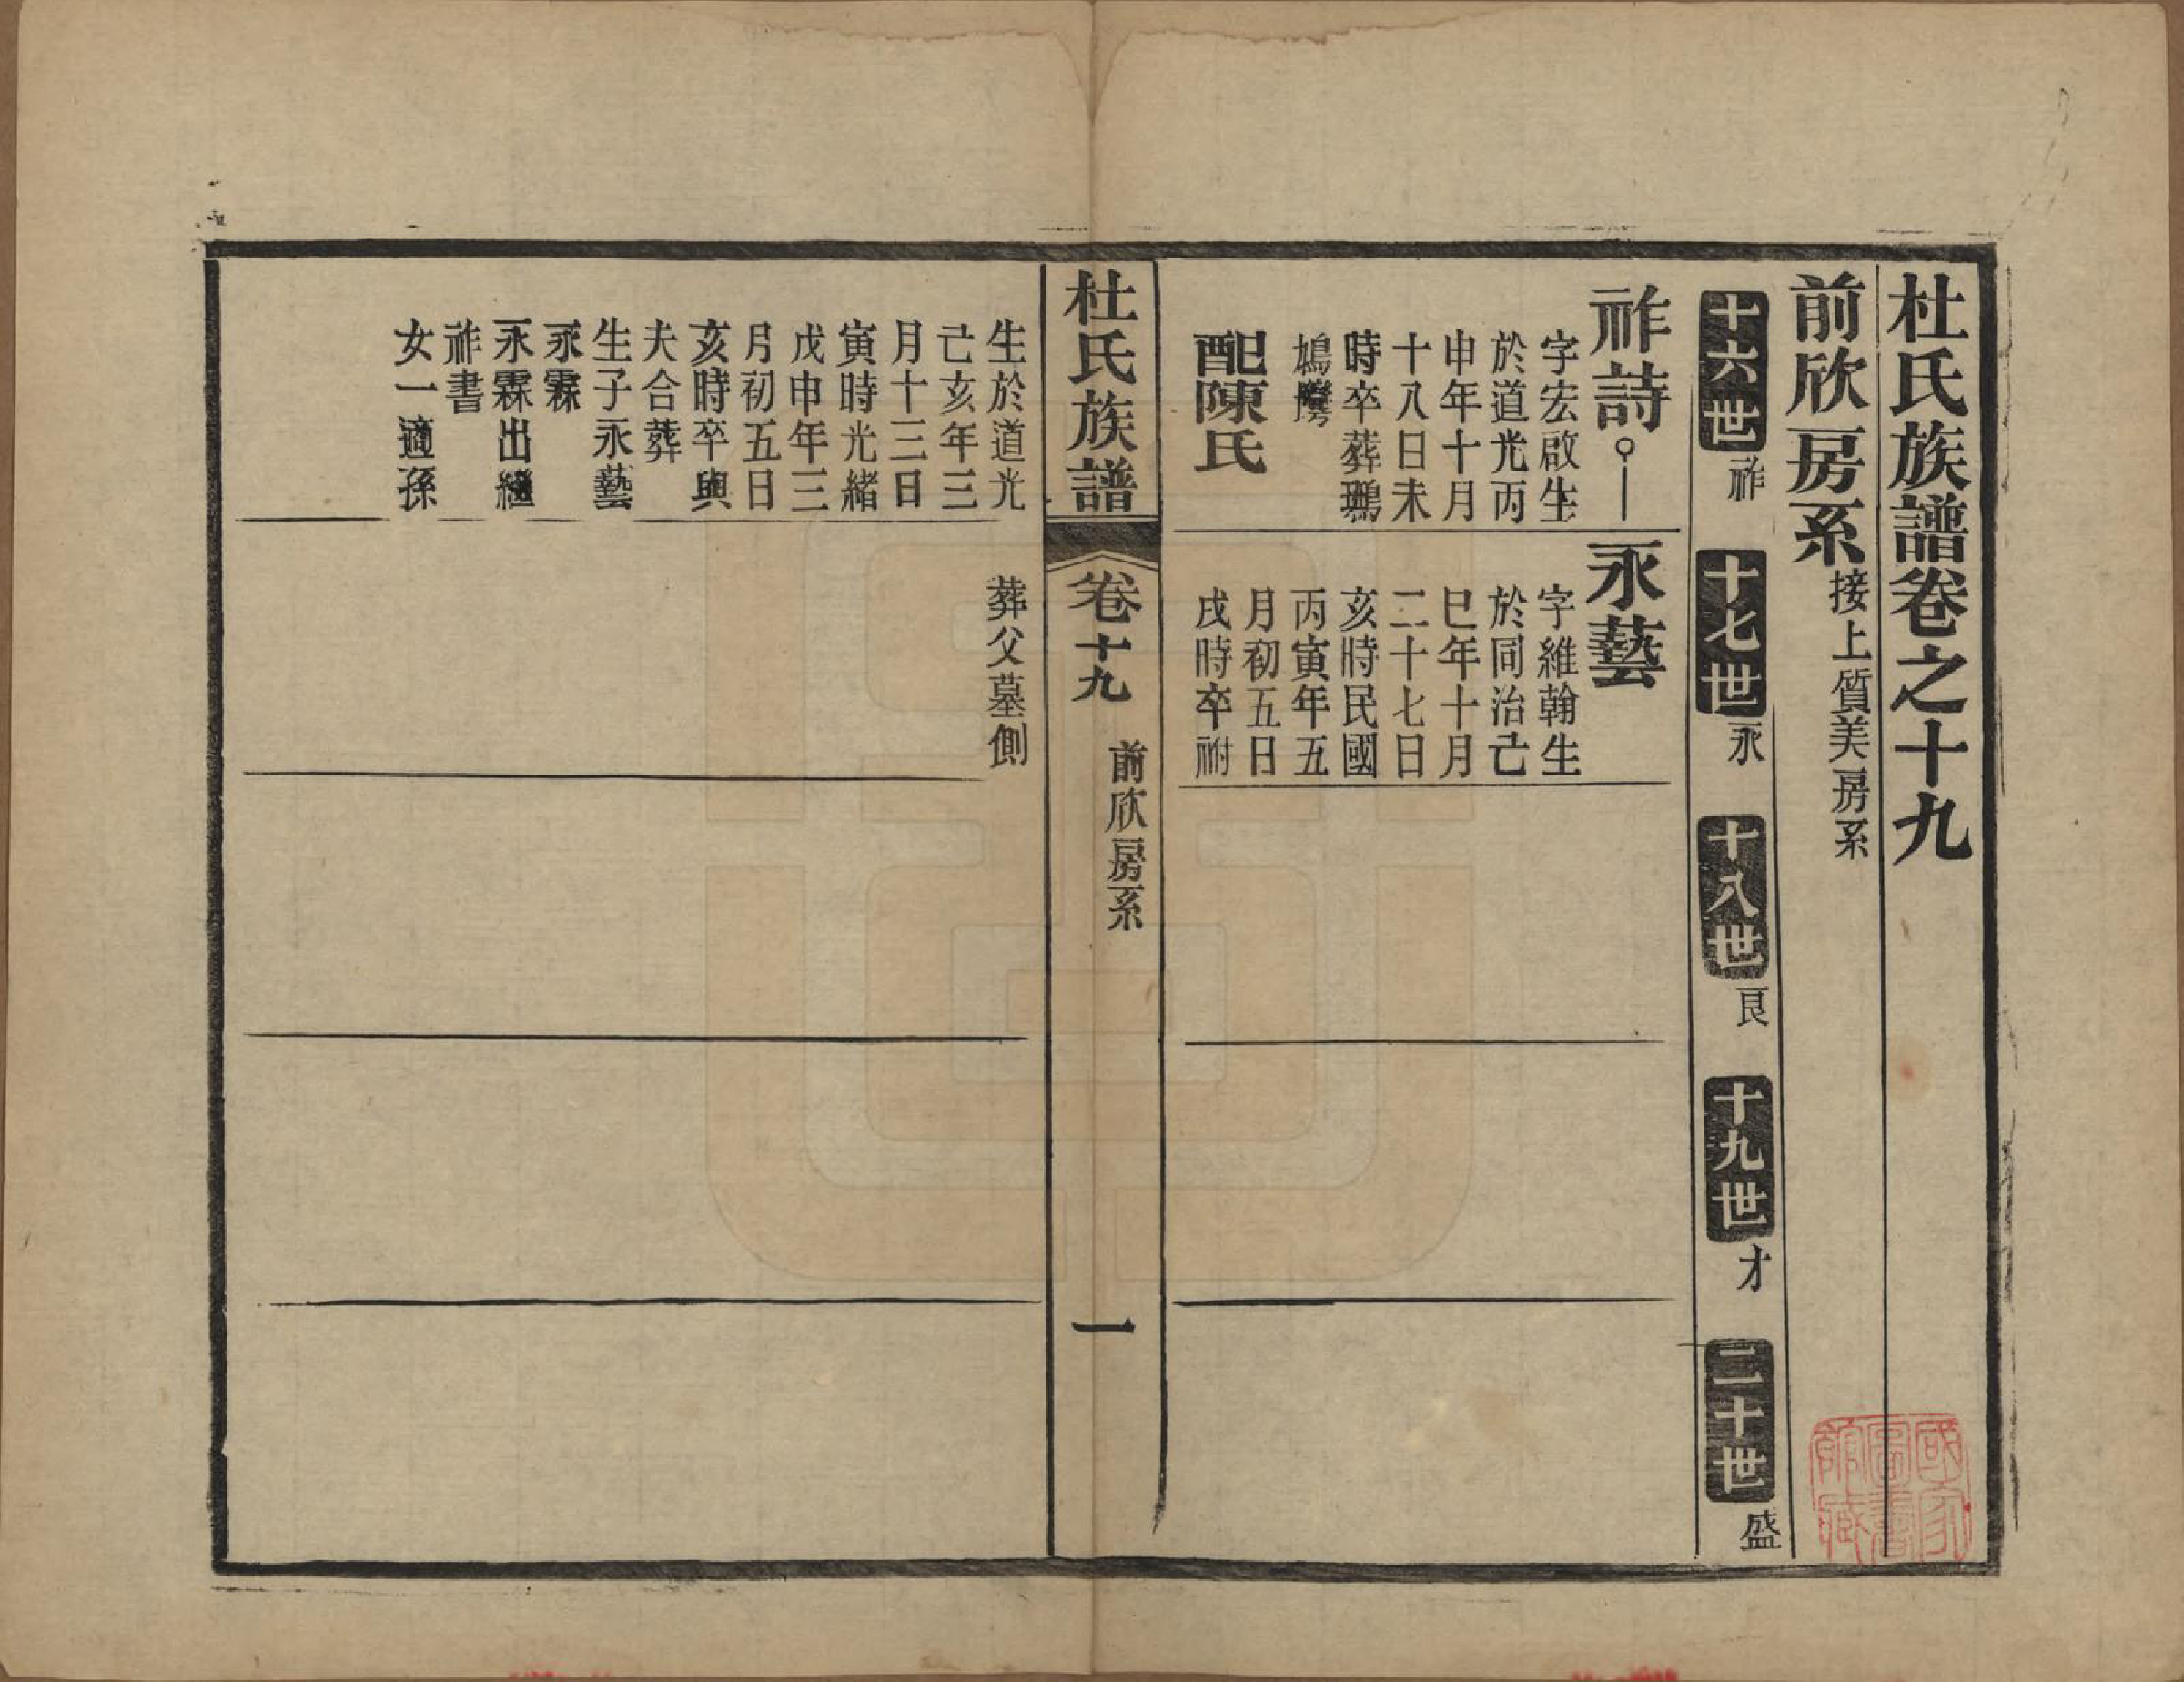 杜氏族譜卷之十九
前欣房系 接上質美房系
十六世 祚
十七世 永
十八世 良
十九世 才
二十世 盛
祚詩
字宏啟生
於道光丙
申年十月
十八日未
時卒葬鸭
鴣
配陳氏
永藝
字維翰生
於同治己
巳年十月
二十七日
亥時民國
丙寅年五
月初五日
戌時卒祔
杜氏族譜
卷十九
前欣房系
一
生於道光
己亥年三
月十三日
寅時光緒
戊申年三
月初五日
亥時卒與
夫合葬
生子永藝
永霖
永霖出繼
祚書
女一適孫
葬父墓側
國家圖書館藏